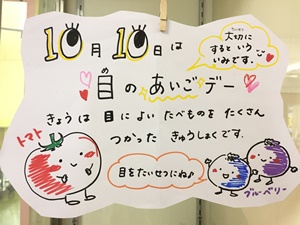 10月10日は
大切に
するという
いみです。
目のあいごデー
きょうは 目に よい たべものを たくさん
つかった きゅうしょくです。
トマト
目をたいせつにね♪
ブルーベリー